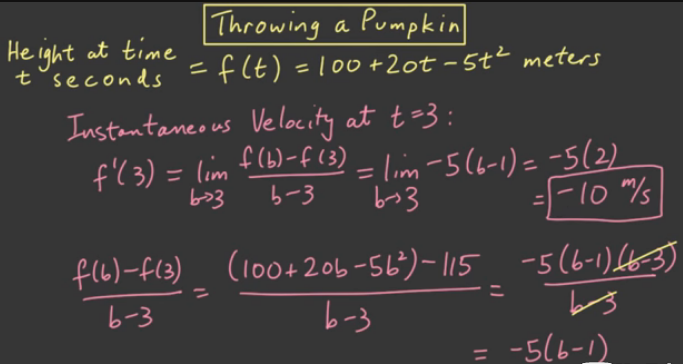 Throwing a Pumpkin
Height at time t seconds = f(t) = 100 + 20t - 5t² meters
Instantaneous Velocity at t=3:
f'(3) = lim b→3 f(b)-f(3) / b-3 = lim b→3 -5(b-1) = -5(2)
= -10 m/s
f(b)-f(3) / b-3 = (100+20b-5b²)-115 / b-3 = -5(b-1)(b-3) / b-3
= -5(b-1)